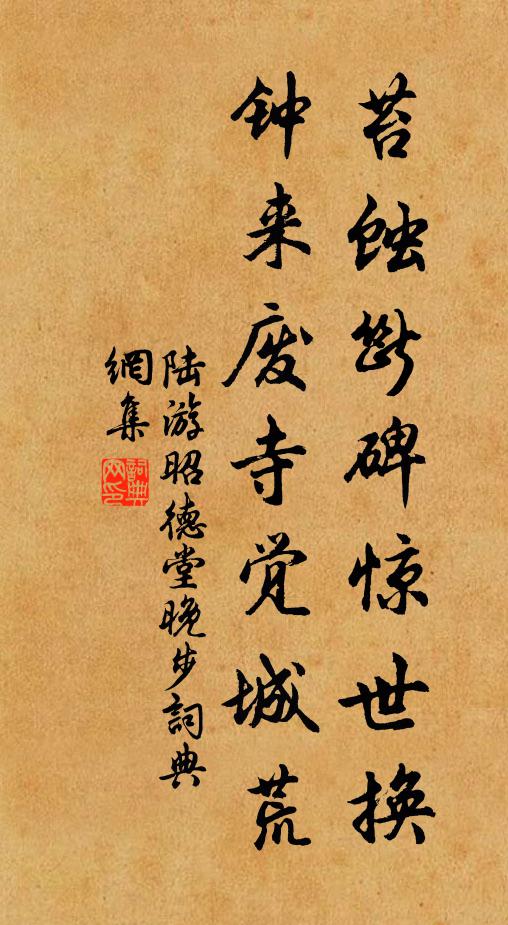 苔蚀断碑惊世换
钟来废寺觉城荒
陆游昭德堂晚步詞典
網集
詞典网印